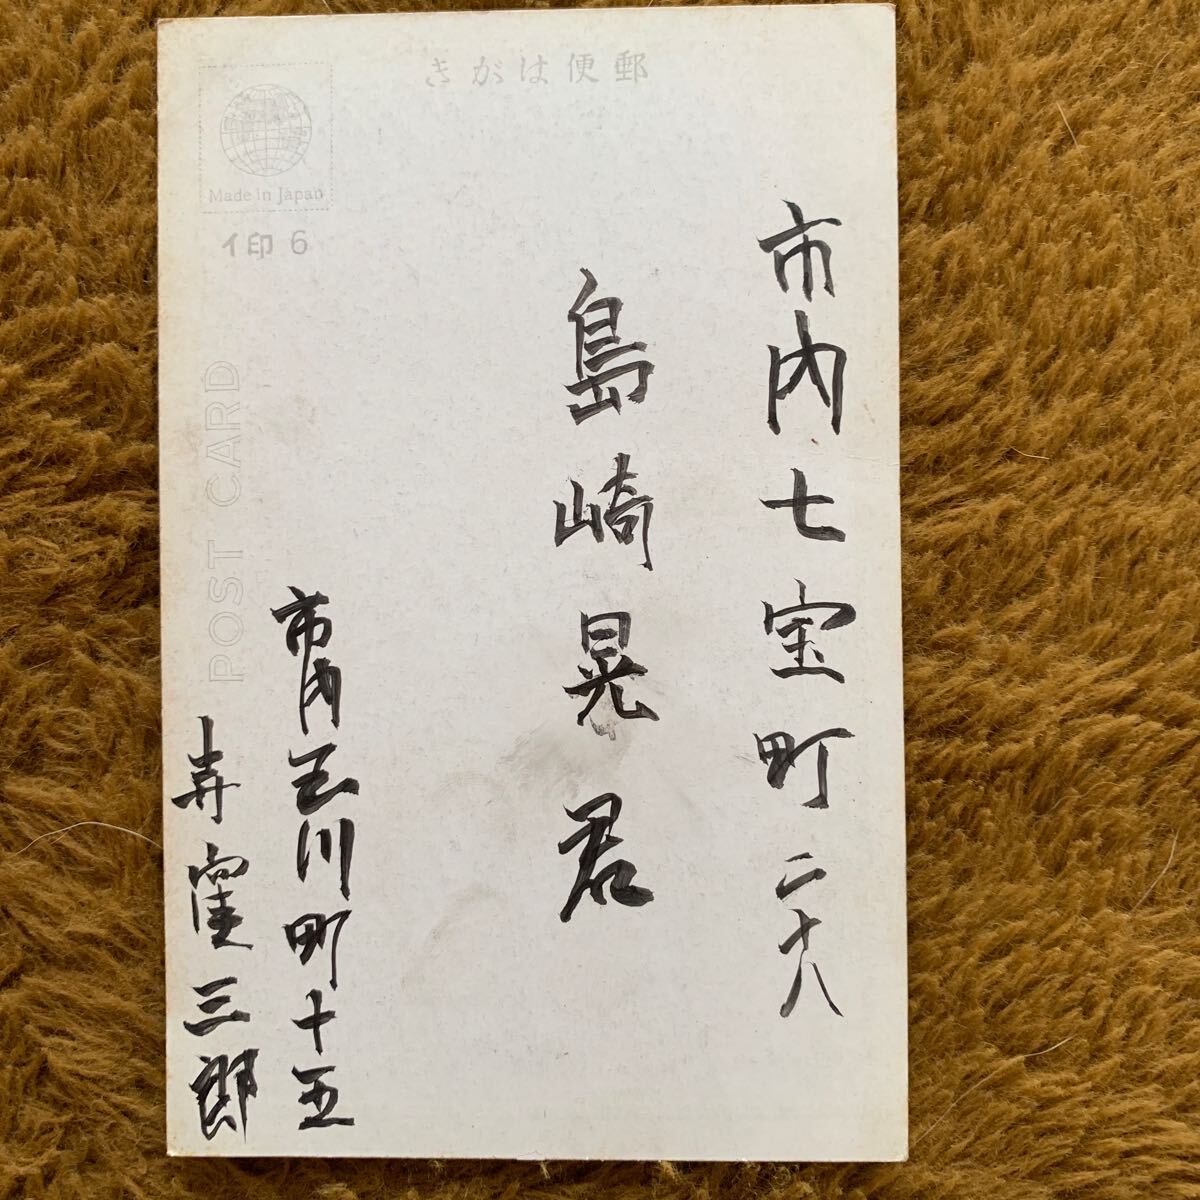 郵便はがき
Made in Japan
イ印 6
POST CARD
市内七宝町二十八
島崎晃君
市内玉川町十五
窪三郎